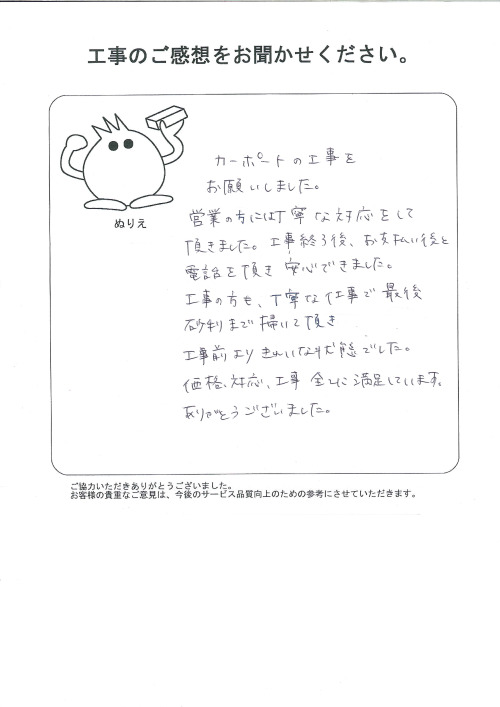 工事のご感想をお聞かせください。
ぬりえ
カーポートの工事を
お願いしました。
営業の方には丁寧な対応をして
頂きました。工事終了後、お支払い後と
電話を頂き安心できました。
工事の方も、丁寧な仕事で最後
砂利まで掃いて頂き
工事前よりきれいな状態でした。
価格、対応、工事全てに満足しています。
ありがとうございました。
ご協力いただきありがとうございました。
お客様の貴重なご意見は、今後のサービス品質向上のための参考にさせていただきます。